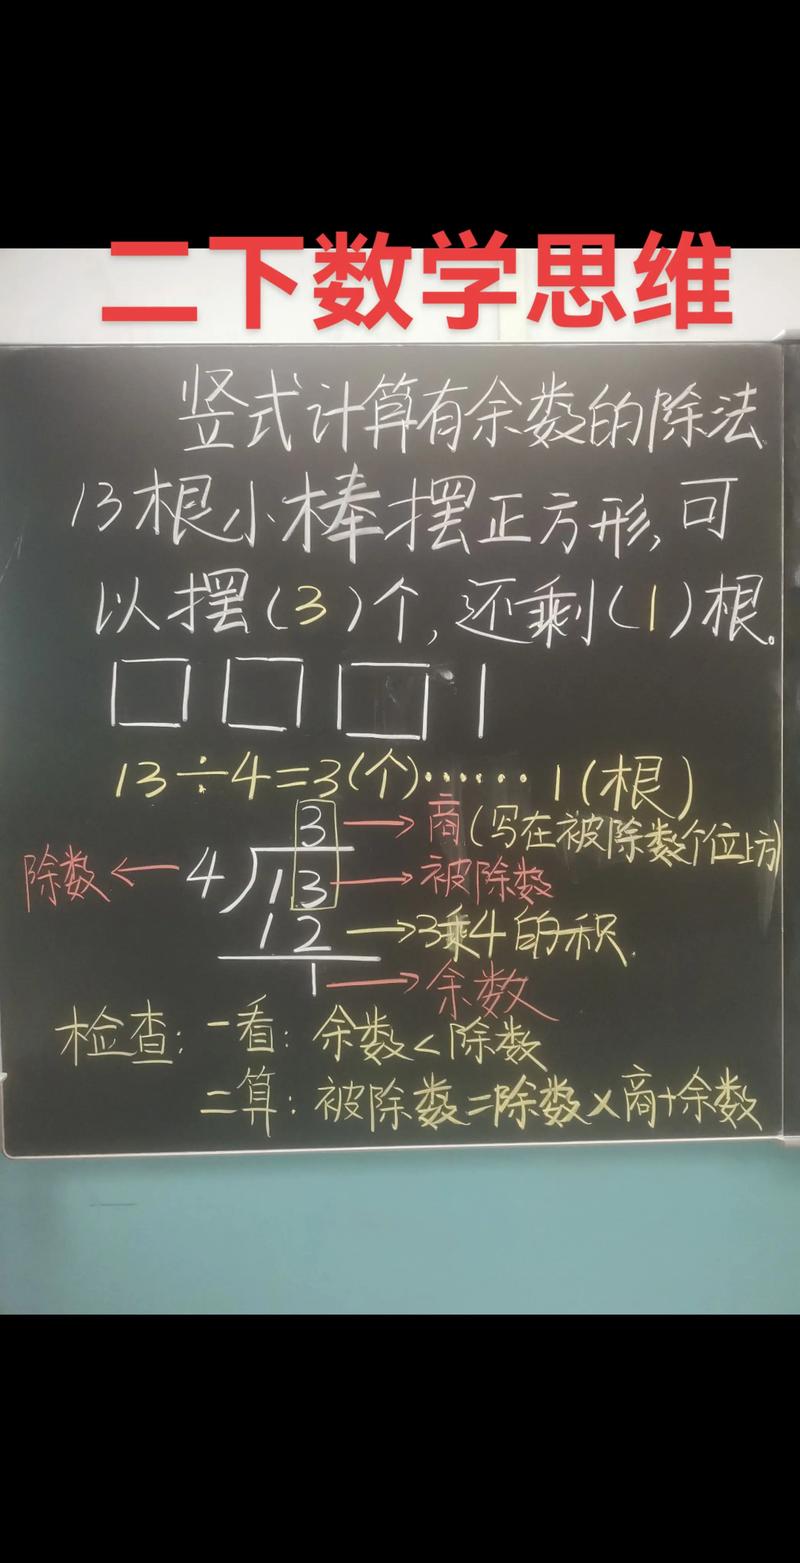 二下数学思维
竖式计算有余数的除法
13根小棒摆正方形,可
以摆(3)个,还剩(1)根。
13÷4=3(个)……1(根)
3→商(写在被除数个位上方)
除数←4 13→被除数
12→3乘4的积.
1→余数
检查:一看:余数<除数
二算:被除数=除数×商+余数